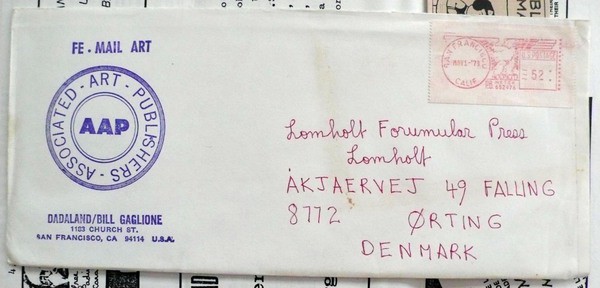 FE-MAIL ART
ASSOCIATED-ART-PUBLISHERS-
AAP
DADALAND/BILL GAGLIONE
1183 CHURCH ST.
SAN FRANCISCO, CA 94114 U.S.A.
SAN FRANCISCO
CALIF
U.S. POSTAGE
52
Lomholt Forumular Press
Lomholt
ÅKJAERVEJ 49 FALLING
8772 ØRTING
DENMARK